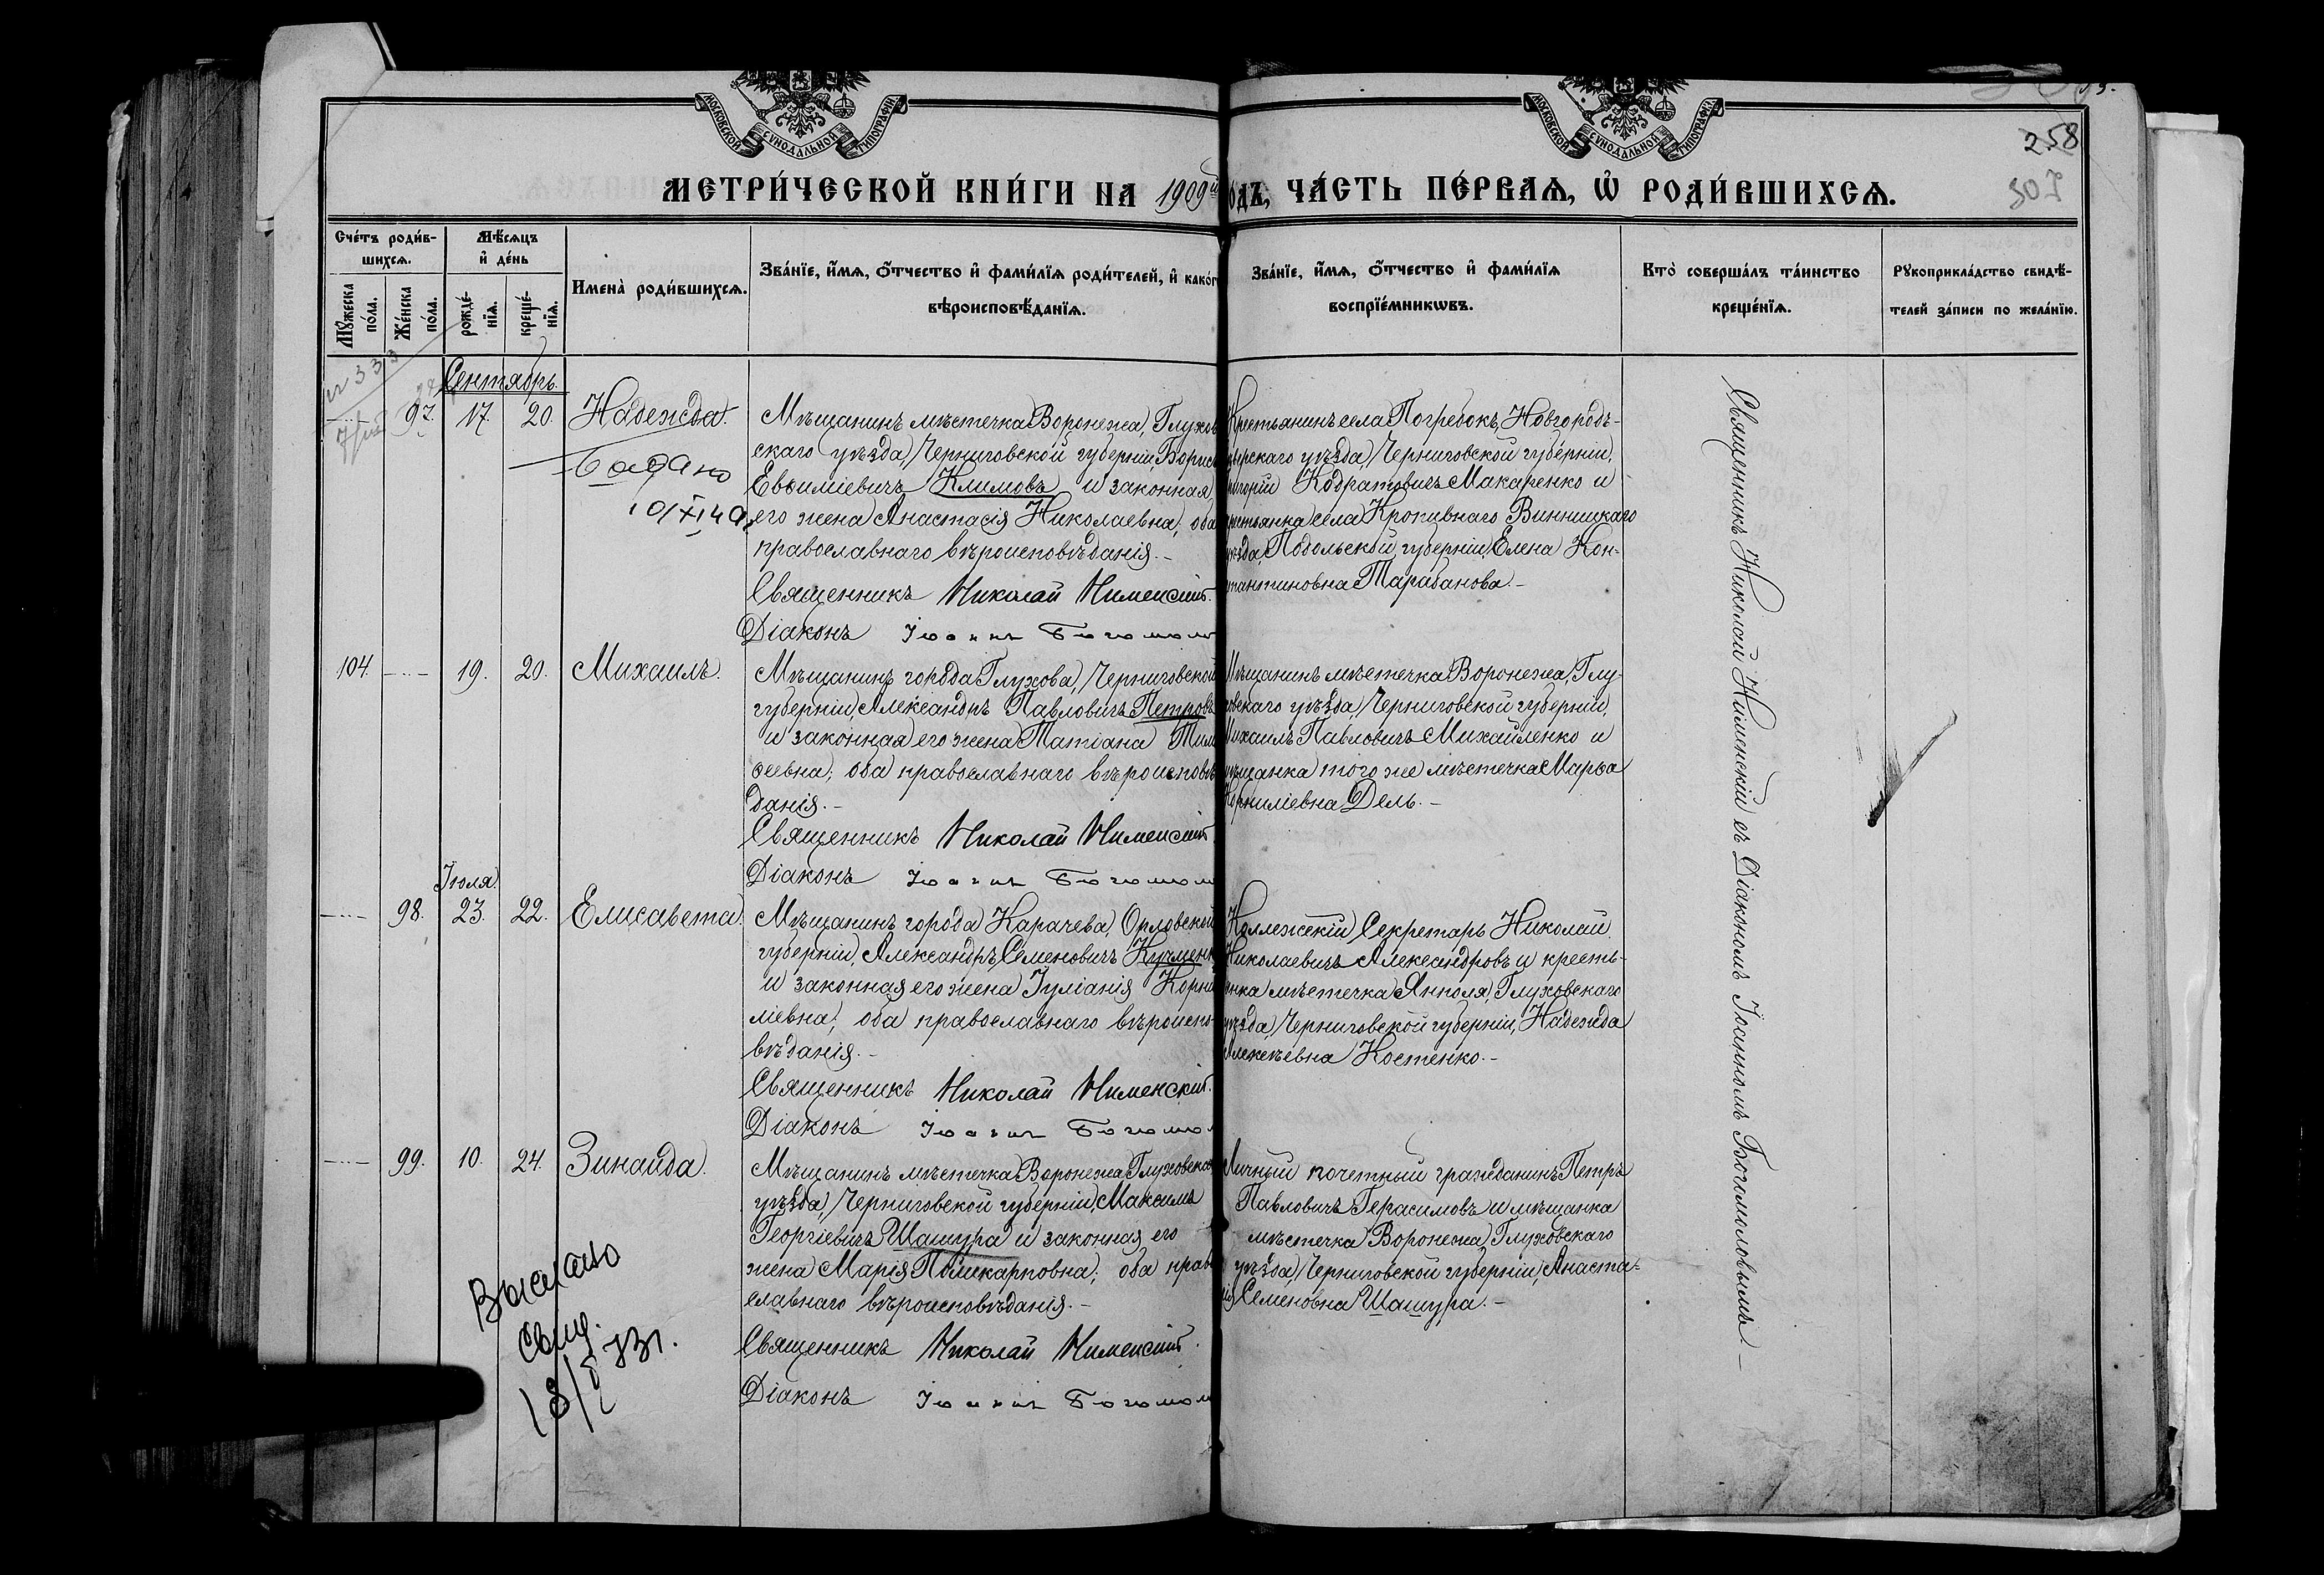 МОСКОВСКОЙ СѴНОДАЛЬНОЙ ТИПОГРАФІИ
МОСКОВСКОЙ СѴНОДАЛЬНОЙ ТИПОГРАФІИ
258
МЕТРИ́ЧЕСКОЙ КНИ́ГИ НА 1909й
ѻдъ, ЧА́СТЬ ПЕ́РВАѦ, Ѡ҆ РОДИ́ВШИХСѦ.
Сче́тъ роди́в-
шихсѧ.
Мѣ́сѧцъ
и҆ де́нь
Мꙋ́жеска по́ла.
Же́нска по́ла.
рожде́-нїѧ.
креще́-нїѧ.
Имена̀ роди́вшихсѧ.
Зва́нїе, и҆́мѧ, ѻ҆́тчество и҆ фами́лїѧ роди́телей, и҆ како́г
вѣроисповѣ́данїѧ.
Зва́нїе, и҆́мѧ, ѻ҆́тчество и҆ фами́лїѧ
воспрїе́мникѡвъ.
Кто̀ соверша́лъ та́инство
креще́нїѧ.
Рꙋкоприкла́дство свидѣ́-
телей за́писи по жела́нїю.
Сентябрь.
97. 17. 20. Надежда.
Мѣщанинъ мѣстечка Воронежа, Глухов
скаго уѣзда, Черниговской губерніи, Борисъ
Евѳиміевичъ Климовъ и законная
его жена Анастасія Николаевна; оба
православнаго вѣроисповѣданія.-
Священникъ Николай Нименскій.
Діаконъ Іоаннъ Богомол
Крестьянинъ села Погребокъ, Новгородъ-
сѣверскаго уѣзда, Черниговской губерніи,
ригорій Кодратовичъ Макаренко и
рестьянка села Кропивнаго Винницкаго
уѣзда, Подольской губерніи, Елена Кон-
стантиновна Тарабанова.-
104. 19. 20. Михаилъ.
Мѣщанинъ города Глухова, Черниговской
губерніи, Александръ Павловичъ Петровъ
и законная его жена Татіана Тим
ѳеевна; оба православнаго вѣроисповѣ
данія.-
Священникъ Николай Нименскій
Діаконъ Іоаннъ Богомол
Мѣщанинъ мѣстечка Воронежа, Глу-
ховскаго уѣзда, Черниговской губерніи,
Михаилъ Павловичъ Михайленко и
мѣщанка того же мѣстечка Марѳа
Корниліевна Дель.-
Іюля.
98. 23. 22. Елисавета.
Мѣщанинъ города Карачева, Орловской
губерніи, Александръ Семеновичъ
и законная его жена Іуліанія Корни
ліевна; оба православнаго вѣроиспо-
вѣданія.-
Священникъ Николай Нименскій.
Діаконъ Іоаннъ Богомол
Коллежскій Секретарь Николай
Николаевичъ Александровъ и кресть-
янка мѣстечка Янполя, Глуховскаго
уѣзда, Черниговской губерніи, Надежда
Алексѣевна Костенко.-
99. 10. 24. Зинаида.
Мѣщанинъ мѣстечка Воронежа, Глуховска
уѣзда, Черниговской губерніи, Максимъ
Георгіевичъ Шашура и законная его
жена Марія Поликарповна; оба право
славнаго вѣроисповѣданія.-
Священникъ Николай Нименскій.
Діаконъ Іоаннъ Богомол
Личный почетный гражданинъ Петръ
Павловичъ Герасимовъ и мѣщанка
мѣстечка Воронежа, Глуховскаго
уѣзда, Черниговской губерніи, Анаста-
сія Семеновна Шашура.-
Священникъ Николай Нименскій съ Діакономъ Іоанномъ Богомоловымъ.-